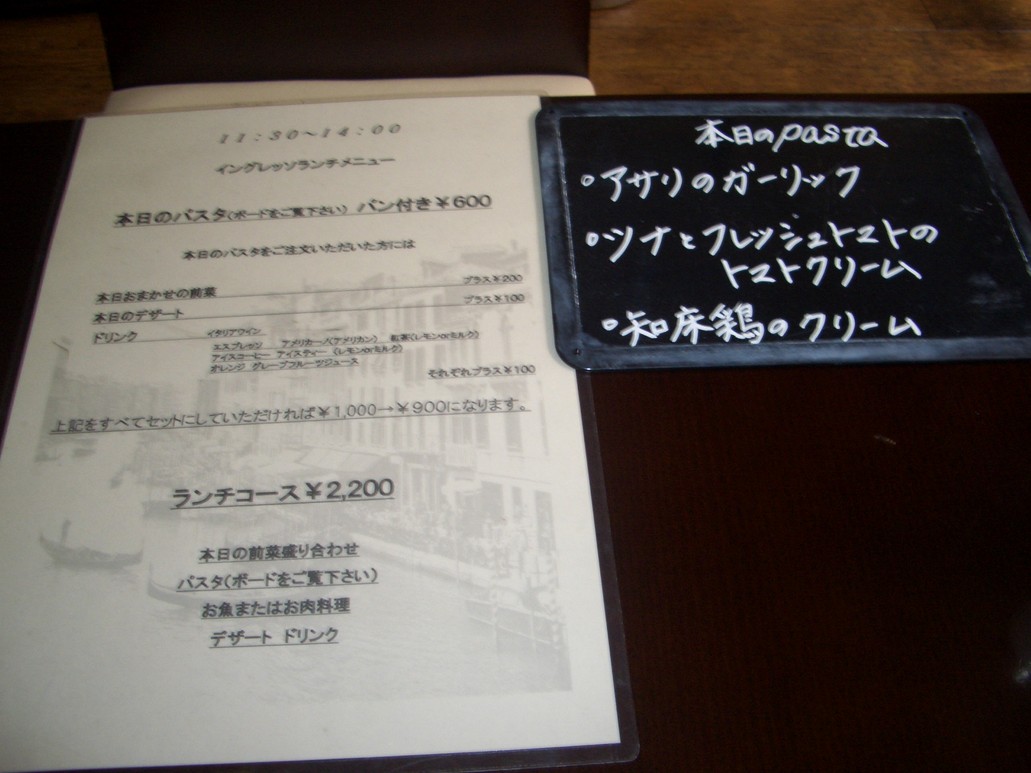 11:30～14:00
イングレッソランチメニュー
本日のパスタ(ボードをご覧下さい) パン付き￥600
本日のパスタをご注文いただいた方には
本日おまかせの前菜 プラス￥200
本日のデザート プラス￥100
ドリンク イタリアワイン
エスプレッソ アメリカーノ(アメリカン) 紅茶(レモンorミルク)
アイスコーヒー アイスティー (レモンorミルク)
オレンジ グレープフルーツジュース
それぞれプラス￥100
上記をすべてセットにしていただければ￥1,000→￥900になります。
ランチコース￥2,200
本日の前菜盛り合わせ
パスタ(ボードをご覧下さい)
お魚またはお肉料理
デザート ドリンク
本日のpasta
・アサリのガーリック
・ツナとフレッシュトマトの
トマトクリーム
・知床鶏のクリーム